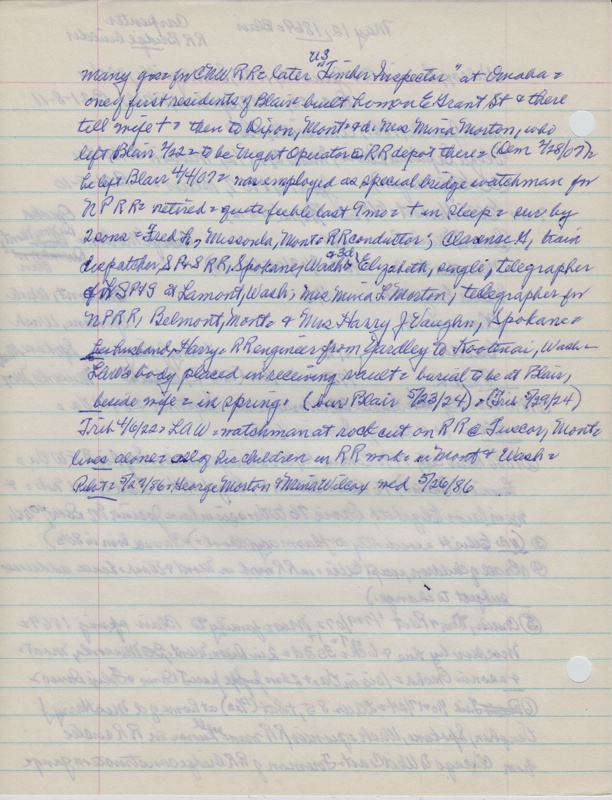 US
many yrs = for CNW RR = later "Timber Inspector" at Omaha =
one of first residents of Blair = built home on E Grant St & there
till wife + = then to Dixon, Mont = & d. Mrs Mina Morton, who
left Blair 2/22 = to be Night Operator @ RR depot there = (Dem 2/28/07)
he left Blair 4/4/07 = was employed as special bridge watchman for
NPRR = retired = quite feeble last 9 mo = + in sleep = sur by
2 sons = Fred L, Missoula, Mont = RR conductor; Clarence H, train
dispatcher, SP&S RR, Spokane, Wash = & 3 d = Elizabeth, single, telegrapher
SP&S @ Lamont, Wash; Mrs Mina L Morton, telegrapher for
NPRR, Belmont, Mont = & Mrs Harry J Vaughn, Spokane =
her husband, Harry = RR engineer from Yardley to Kootenai, Wash =
LAW's body placed in receiving vault = burial to be at Blair,
beside wife = in spring. (bur Blair 5/23/24) = (Trib 5/29/24)
Trib 4/6/22 = LAW = watchman at rock cut on RR @ Tuscor, Mont =
lives alone = all of his children in RR work = in Mont & Wash =
Pilot = 5/27/86 = George Morton & Mina Wilcox wed 5/26/86